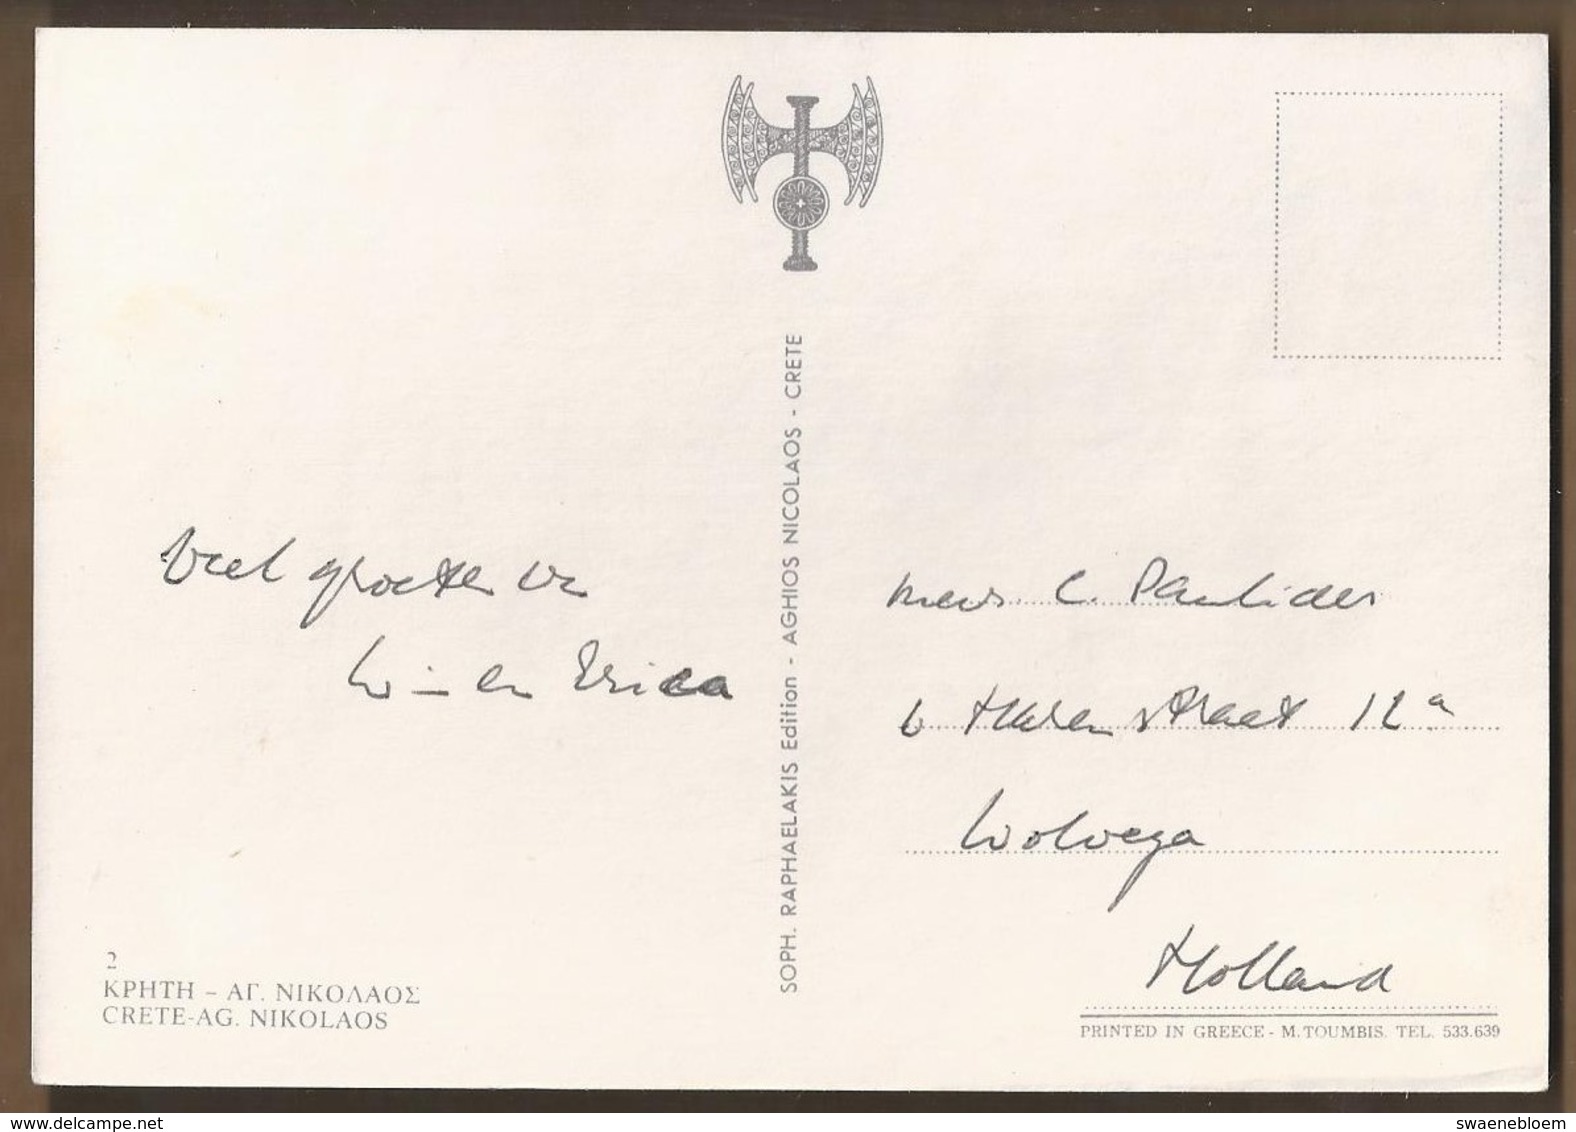 Veel groeten van
Wim en Erica
2
ΚΡΗΤΗ – ΑΓ. ΝΙΚΟΛΑΟΣ
CRETE-AG. NIKOLAOS
SOPH. RAPHAELAKIS Edition - AGHIOS NICOLAOS - CRETE
mevr. C. Paulides
straat 12a
Wolvega
Holland
PRINTED IN GREECE - M. TOUMBIS. TEL. 533.639
www.delcampe.net
swaenebloem